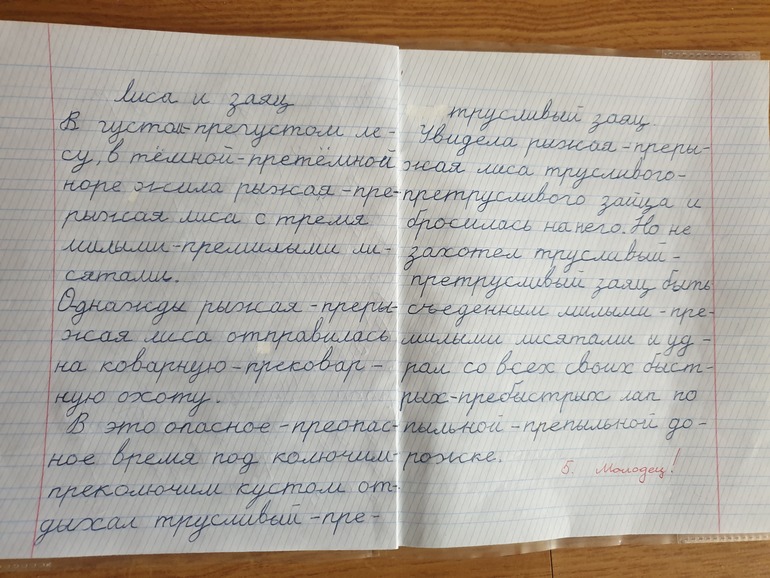 Лиса и заяц
В густом-прегустом ле-
су, в тёмной-претёмной
норе жила рыжая-пре-
рыжая лиса с тремя
милыми-премилыми ли-
сятами.
Однажды рыжая-преры-
жая лиса отправилась
на коварную-прековар-
ную охоту.
В это опасное-преопас-
ное время под колючим-
преколючим кустом от-
дыхал трусливый-пре-
трусливый заяц.
Увидела рыжая-преры-
жая лиса трусливого-
претрусливого зайца и
бросилась на него. Но не
захотел трусливый-
претрусливый заяц быть
съеденным милыми-пре-
милыми лисятами и уд-
рал со всех своих быст-
рых-пребыстрых лап по
пыльной-препыльной до-
рожке.
5. Молодец!